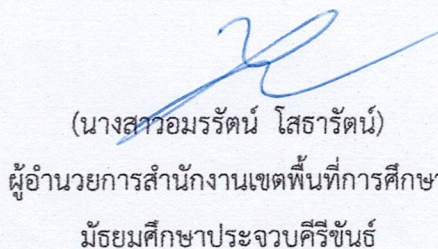 (นางสาวอมรรัตน์ โสธารัตน์)
ผู้อำนวยการสำนักงานเขตพื้นที่การศึกษา
มัธยมศึกษาประจวบคีรีขันธ์